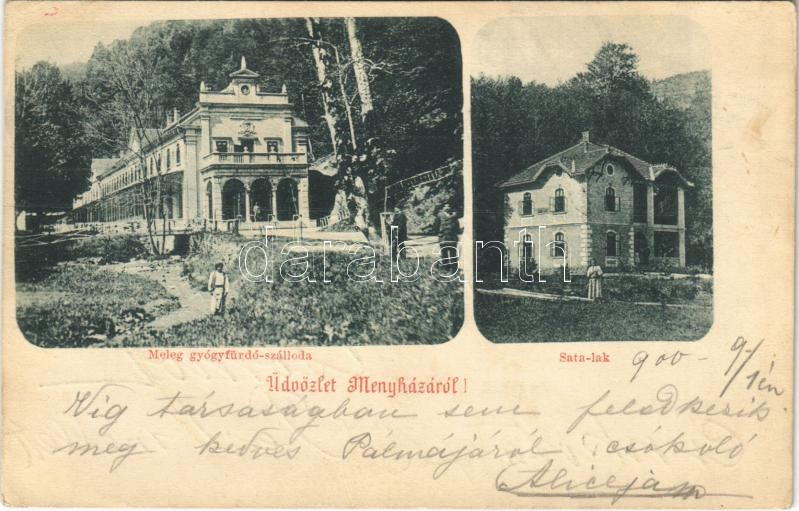 Meleg gyógyfürdő-szálloda
Sata-lak
Üdvözlet Menyházáról!
900 - 9/1én
Vig társaságban sem feledkezik
meg kedves Pálmájáról csókoló
Aliceja
darabanth